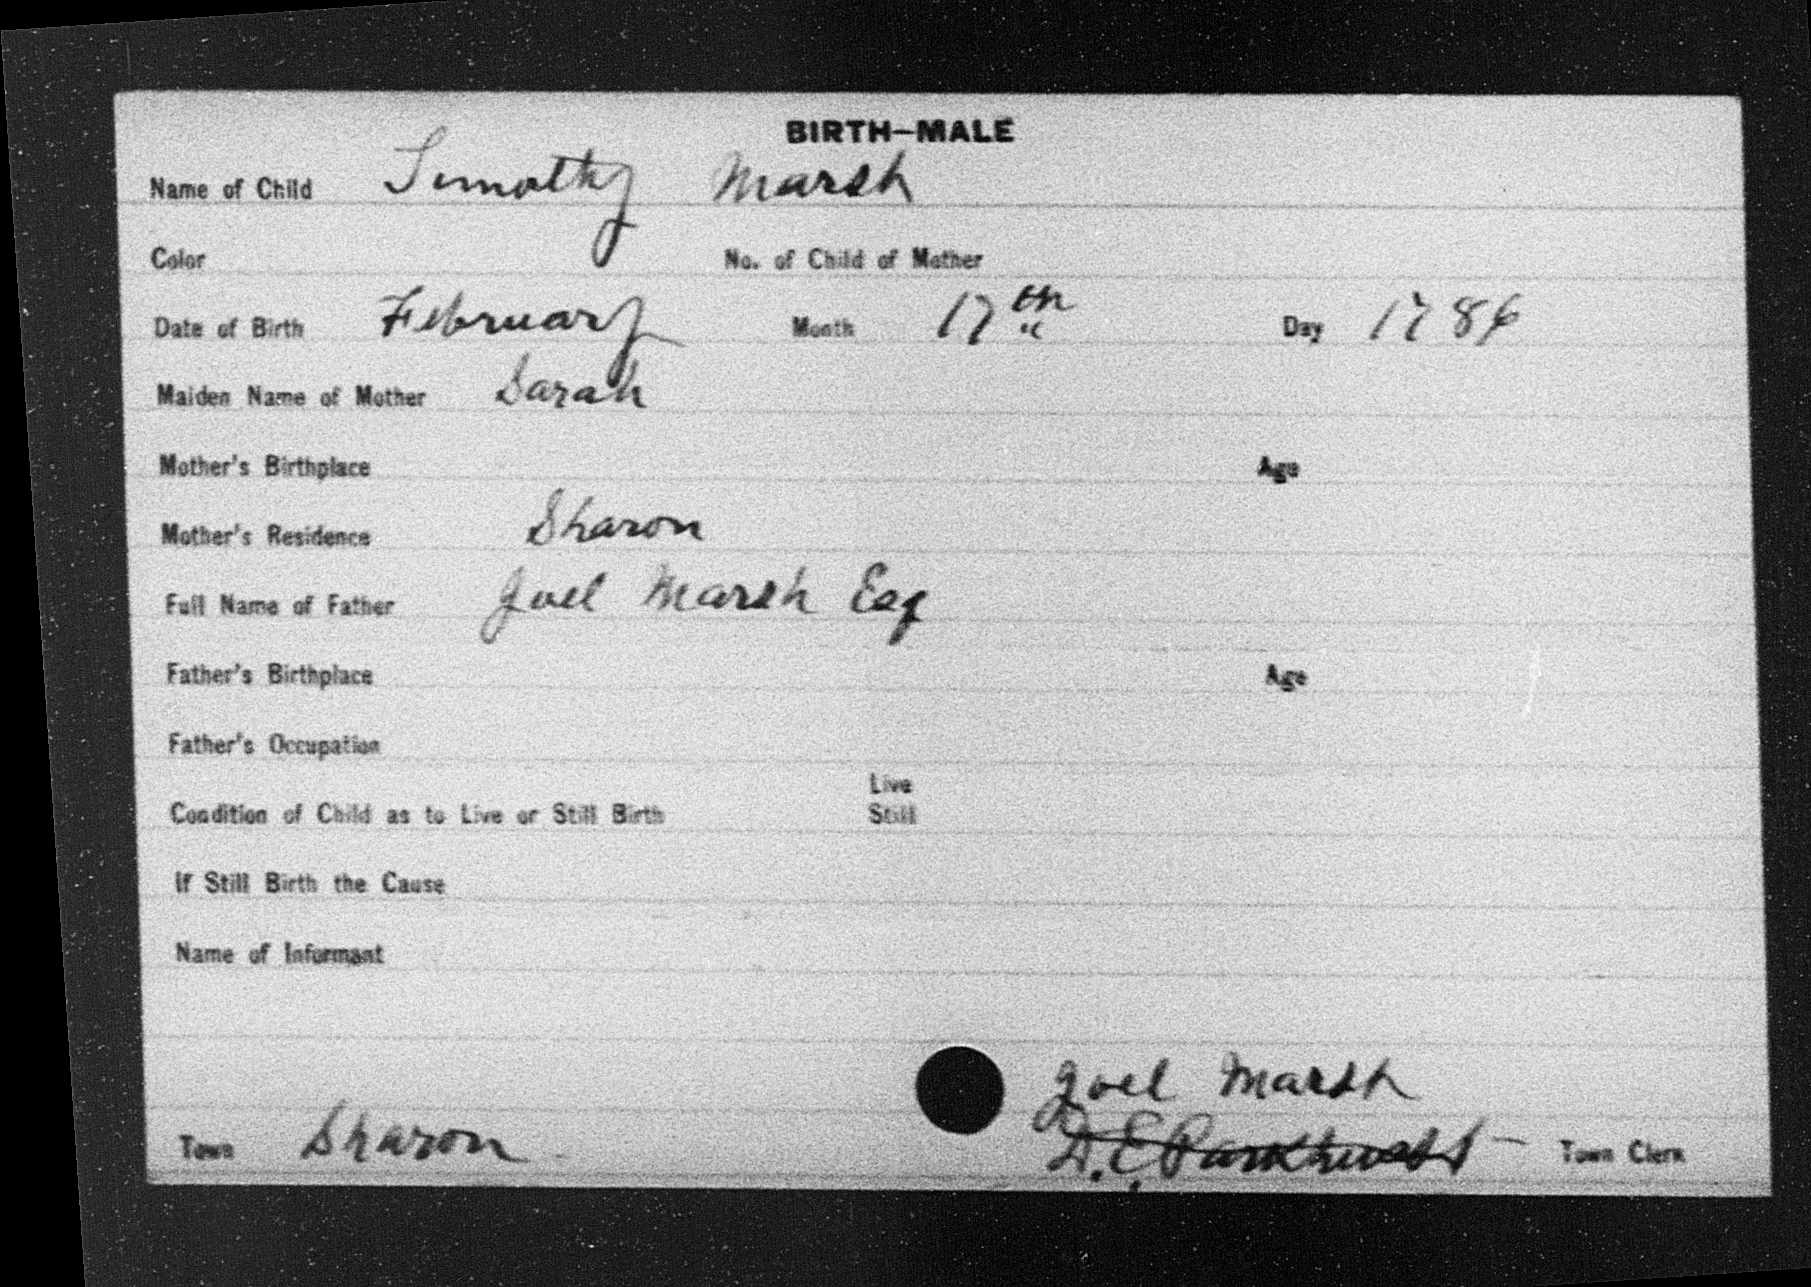 BIRTH—MALE
Name of Child Timothy Marsh
Color No. of Child of Mother
Date of Birth February Month 17th " Day 1786
Maiden Name of Mother Sarah
Mother's Birthplace Age
Mother's Residence Sharon
Full Name of Father Joel Marsh Esq
Father's Birthplace Age
Father's Occupation
Live
Condition of Child as to Live or Still Birth Still
If Still Birth the Cause
Name of Informant
Joel Marsh
Town Sharon D. E. Parkhurst — Town Clerk